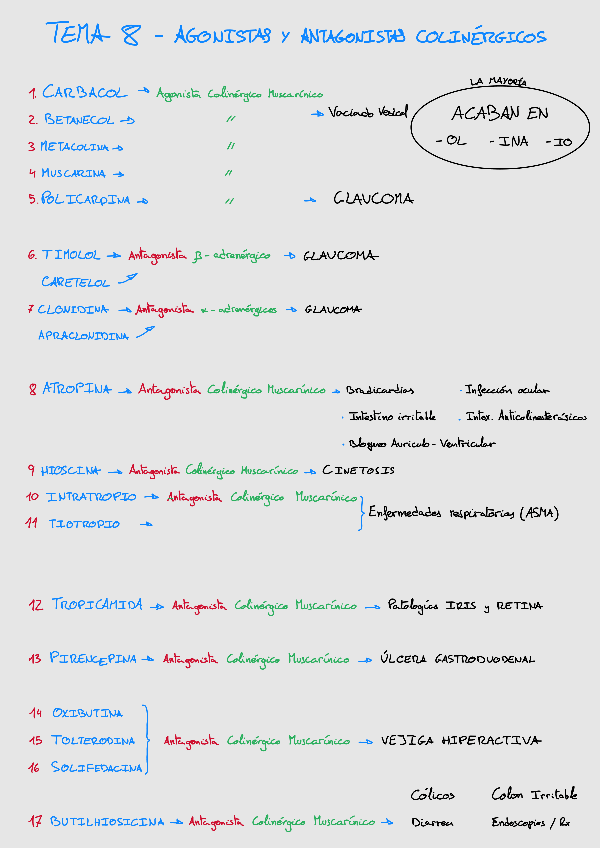 TEMA 8 - AGONISTAS Y ANTAGONISTAS COLINÉRGICOS
LA MAYORÍA
ACABAN EN
- OL - INA - IO
1. CARBACOL → Agonista Colinérgico Muscarínico
2. BETANECOL → " → Vaciado Vesical
3 METACOLINA → "
4 MUSCARINA → "
5. POLICARDINA → " → GLAUCOMA
6. TIMOLOL → Antagonista β-adrenérgico → GLAUCOMA
CARETELOL
7 CLONIDINA → Antagonista α-adrenérgicos → GLAUCOMA
APRACLONIDINA
8 ATROPINA → Antagonista Colinérgico Muscarínico → Bradicardias · Infección ocular
· Intestino irritable · Intox. Anticolinesterásicos
· Bloqueo Auriculo-Ventricular
9 HIOSCINA → Antagonista Colinérgico Muscarínico → CINETOSIS
10 INTRATROPIO → Antagonista Colinérgico Muscarínico
11 TIOTROPIO →
Enfermedades respiratorias (ASMA)
12 TROPICAMIDA → Antagonista Colinérgico Muscarínico → Patologías IRIS y RETINA
13 PIRENCEPINA → Antagonista Colinérgico Muscarínico → ÚLCERA GASTRODUODENAL
14 OXIBUTINA
15 TOLTERODINA Antagonista Colinérgico Muscarínico → VEJIGA HIPERACTIVA
16 SOLIFEDACINA
Cólicos Colon Irritable
17 BUTILHIOSICINA → Antagonista Colinérgico Muscarínico → Diarrea Endoscopias / Rx